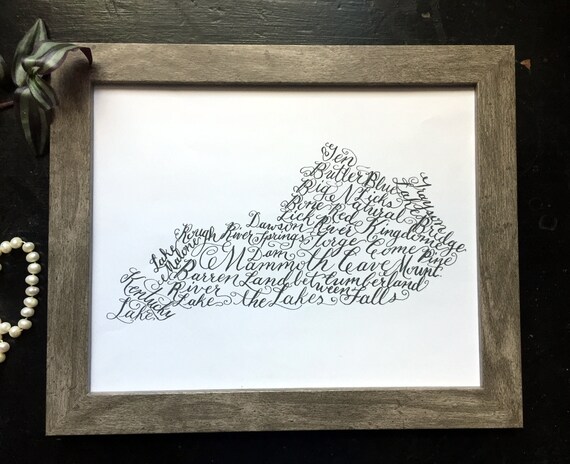 Gen
Butler Blue Grayson
Big Licks Lake
Bone Natural
Lick Red Bridge
Dawson River Kingdom
Rough River Springs Gorge Come Pine
Lake Malone
Dam
Mammoth Cave Mount.
Barren Land bet Cumberland
Kentucky River ween Falls
Lake Lake the Lakes